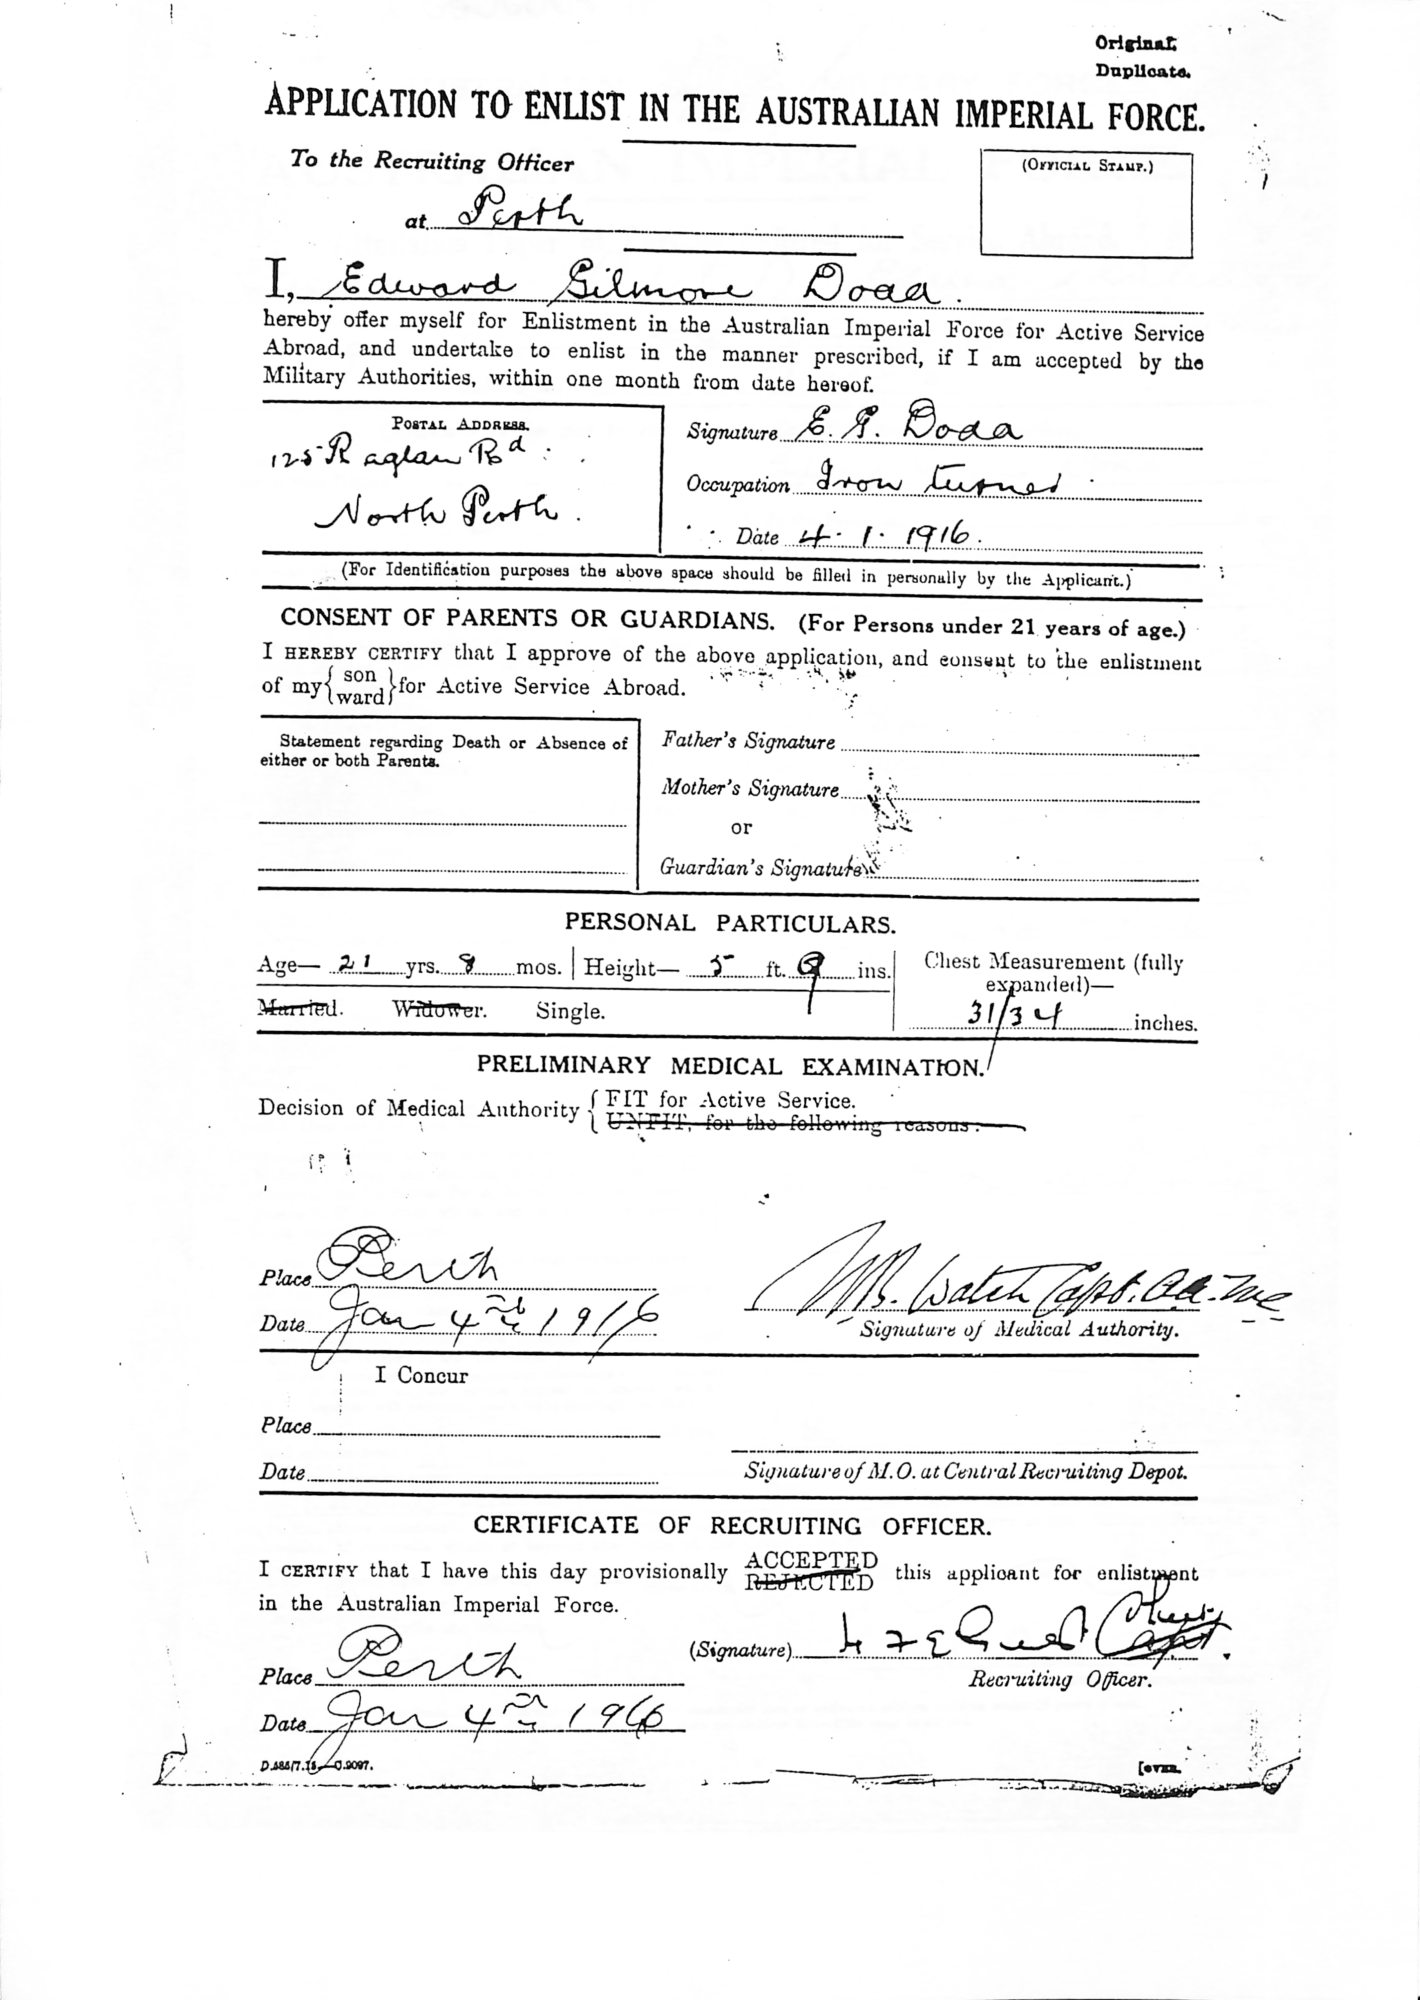 Original.
Duplicate.
APPLICATION TO ENLIST IN THE AUSTRALIAN IMPERIAL FORCE.
To the Recruiting Officer
(OFFICIAL STAMP.)
at Perth
I, Edward Gilmore Dodd.
hereby offer myself for Enlistment in the Australian Imperial Force for Active Service
Abroad, and undertake to enlist in the manner prescribed, if I am accepted by the
Military Authorities, within one month from date hereof.
POSTAL ADDRESS.
125 Raglan Rd
North Perth.
Signature E. G. Dodd
Occupation Iron turner
Date 4. 1. 1916.
(For Identification purposes the above space should be filled in personally by the Applicant.)
CONSENT OF PARENTS OR GUARDIANS. (For Persons under 21 years of age.)
I HEREBY CERTIFY that I approve of the above application, and consent to the enlistment
of my {son ward} for Active Service Abroad.
Statement regarding Death or Absence of
either or both Parents.
Father's Signature
Mother's Signature
or
Guardian's Signature
PERSONAL PARTICULARS.
Age— 21 yrs. 8 mos. Height— 5 ft. 9 ins.
Married. Widower. Single.
Chest Measurement (fully
expanded)—
31/34 inches.
PRELIMINARY MEDICAL EXAMINATION.
Decision of Medical Authority { FIT for Active Service.
UNFIT, for the following reasons:—
Place Perth
Date Jan 4th 1916
Capt. A.A.M.C
Signature of Medical Authority.
I Concur
Place
Date
Signature of M.O. at Central Recruiting Depot.
CERTIFICATE OF RECRUITING OFFICER.
I CERTIFY that I have this day provisionally ACCEPTED
REJECTED this applicant for enlistment
in the Australian Imperial Force.
(Signature) Capt.
Recruiting Officer.
Place Perth
Date Jan 4th 1916
[OVER.